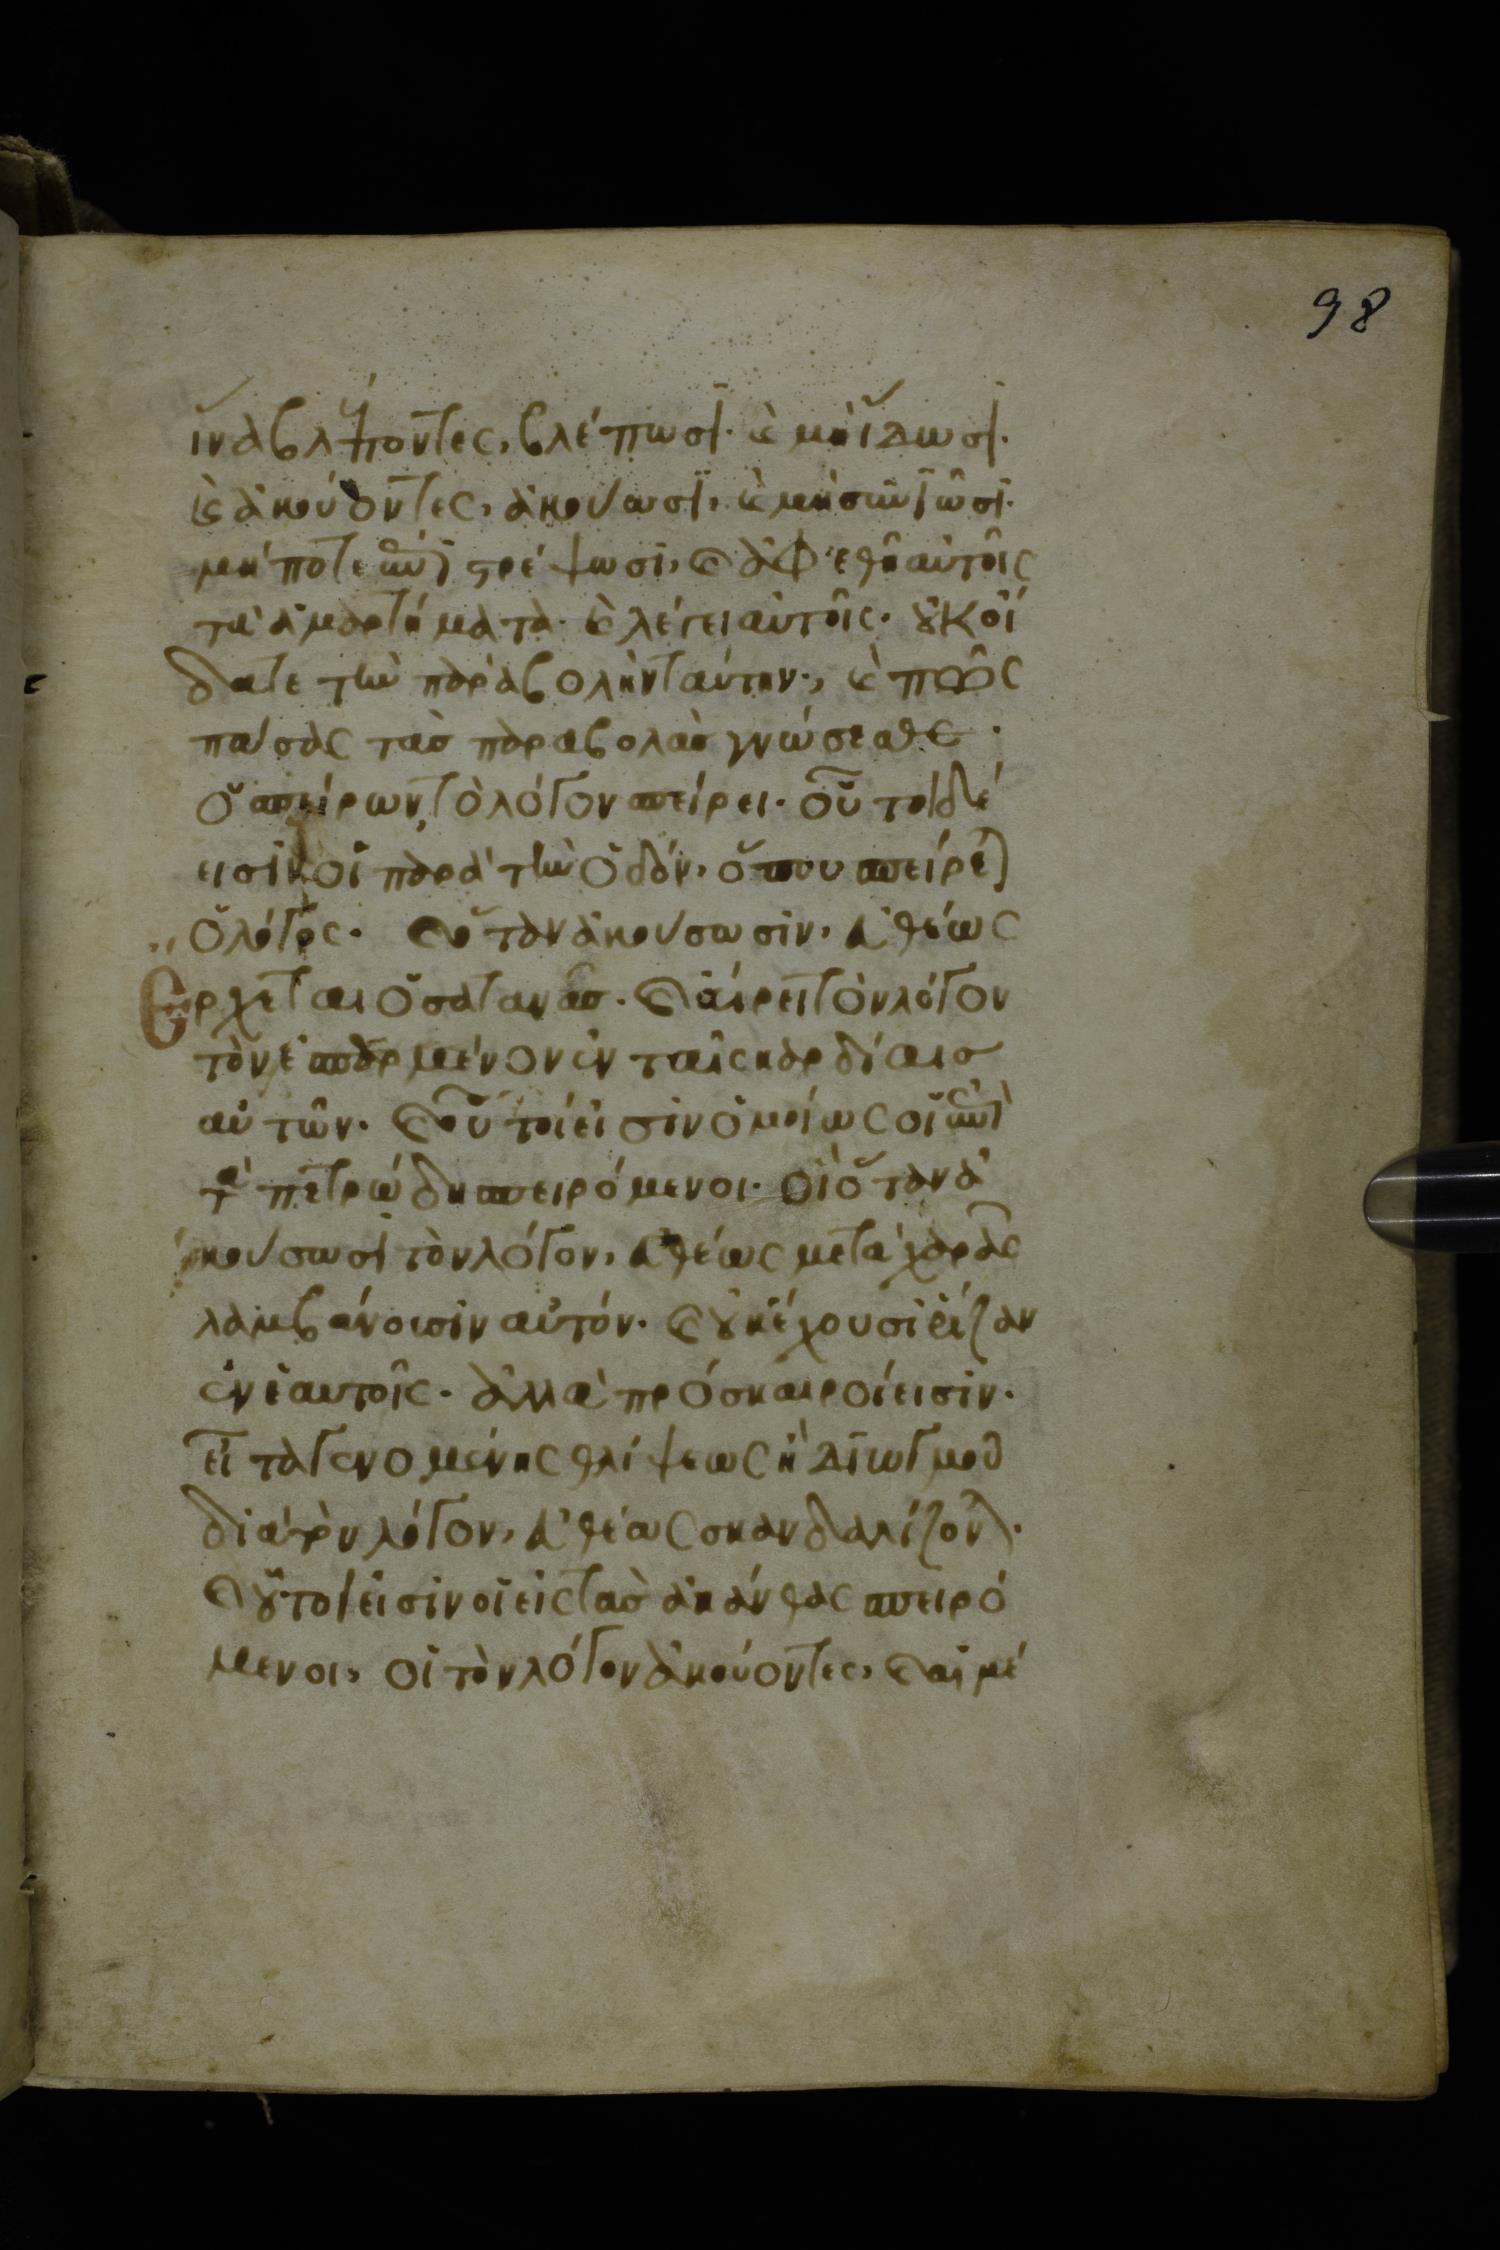 98
ἵνα βλέποντες, βλέπωσι· καὶ μὴ ἴδωσι·
καὶ ἀκούοντες, ἀκούωσϊ, καὶ μὴ συνϊῶσϊ·
μήποτε ἐπιστρέψωσι, καὶ ἀφεθῆ αὐτοῖς
τὰ ἁμαρτήματα· καὶ λέγει αὐτοῖς· οὐκ οἴ
δατε τὴν παραβολὴν ταύτην·, καὶ πῶς
πάσας τὰς παραβολὰς γνώσεσθε·
ὁ σπείρων τὸ λόγον σπείρει· οὗτοι δέ
εισὶν οἱ παρὰ τὴν ὁδόν, ὅπου σπείρεται
ὁ λόγος· καὶ ὅταν ἀκούσωσιν, εὐθέως
Ερχεται ὁ σατανᾶς· καὶ αἴρει τὸν λόγον
τὸν ἐσπαρμένον ἐν ταῖς καρδίαις
αὐτῶν· καὶ οὗτοί εἰσιν ὁμοίως οἱ ἐπὶ
τὰ πετρώδη σπειρόμενοι· οἳ ὅταν ἀ
κούσωσι τὸν λόγον, εὐθέως μετὰ χαρᾶς
λαμβάνουσιν αὐτόν· καὶ οὐκ ἔχουσι ῥίζαν
ἐν ἑαυτοῖς· ἀλλὰ πρόσκαιροί εισιν·
εἶτα γενομένης θλίψεως ἢ διωγμοῦ
διὰ τὸν λόγον, εὐθέως σκανδαλίζονται·
καὶ οὗτοι εἰσιν οἱ εἰς τὰς ἀκάνθας σπειρό
μενοι, οἱ τὸν λόγον ἀκούοντες, καὶ αἱ μέ